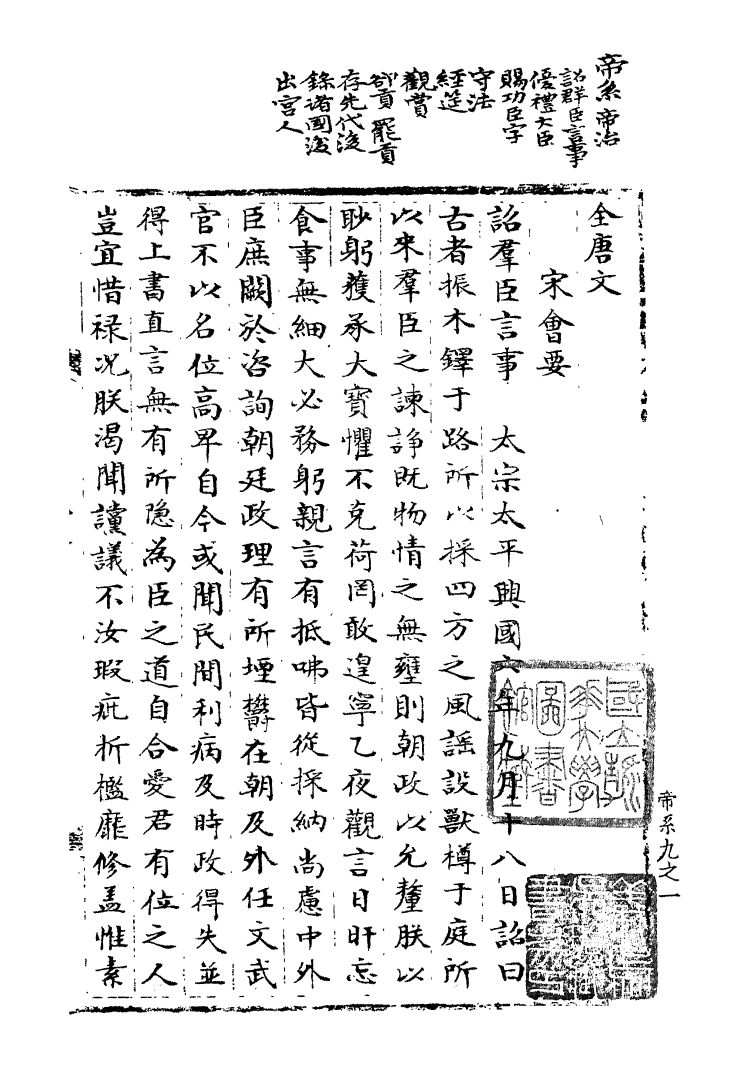 帝系 帝治
詔群臣言事
優禮大臣
賜功臣字
守法
經筵
觀賞
卻貢 罷貢
存先代後
錄諸國後
出宮人
全唐文
宋會要
詔羣臣言事 太宗太平興國六年九月十八日詔曰
古者振木鐸于路所以採四方之風謡設獸樽于庭所
以來羣臣之諫諍既物情之無壅則朝政以允釐朕以
眇躬獲承大寶懼不克荷罔敢遑寧乙夜觀言日旰忘
食事無細大必務躬親言有抵咈皆從採納尚慮中外
臣庶闕於咨詢朝廷政理有所堙欝在朝及外任文武
官不以名位高卑自今或聞民間利病及時政得失並
得上書直言無有所隐為臣之道自合愛君有位之人
豈宜惜禄况朕渴聞讜議不汝瑕疵折檻靡修盖惟素
帝系九之一
國立北
平圖書